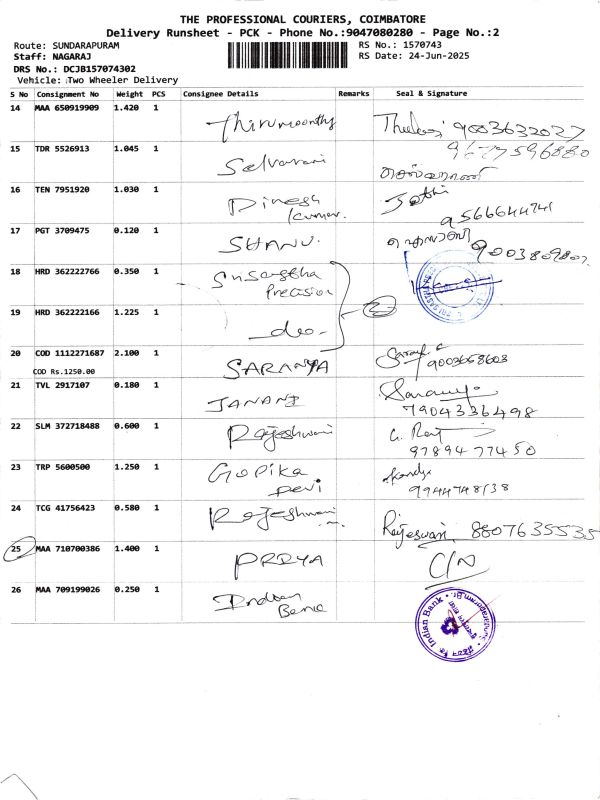 THE PROFESSIONAL COURIERS, COIMBATORE
Delivery Runsheet - PCK - Phone No.:9047080280 - Page No.:2
Route: SUNDARAPURAM
RS No.: 1570743
Staff: NAGARAJ
RS Date: 24-Jun-2025
DRS No.: DCJB157074302
Vehicle: Two Wheeler Delivery
S No Consignment No Weight PCS Consignee Details Remarks Seal & Signature
14 MAA 650919909 1.420 1 Thirumoorthy 9003632027
15 TDR 5526913 1.045 1 Selvarani 9677596880
செல்வராணி
16 TEN 7951920 1.030 1 Dinesh Jothi
Kumar. 9566644741
17 PGT 3709475 0.120 1 SHANU. 9003809802
18 HRD 362222766 0.350 1
Precision
19 HRD 362222166 1.225 1 -do-
20 COD 1112271687 2.100 1 SARANYA 9003658603
COD Rs.1250.00
21 TVL 2917107 0.180 1 JANANI Saranya
7904336498
22 SLM 372718488 0.600 1 Rajeshwari
9789477450
23 TRP 5600500 1.250 1 Gopika
Devi 9944748138
24 TCG 41756423 0.580 1 Rajeshwari Rajeswari 8807635535
25 MAA 710700386 1.400 1 PRIYA C/N
26 MAA 709199026 0.250 1 Indian
Bank
Indian Bank